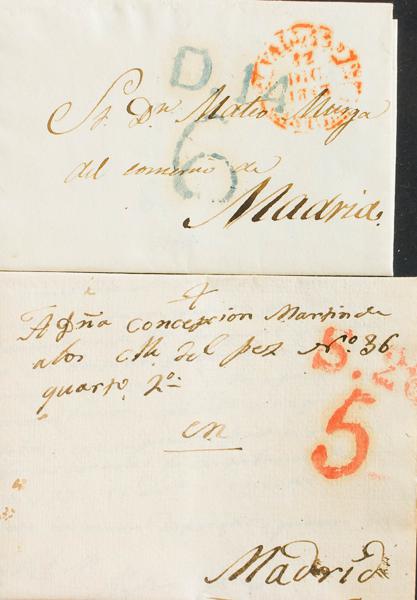 D. 14
6
12
DIC
Sr. Dn. Mateo Murga
del comercio de
Madrid.
A Dña Concepcion Martin de
alos Clle del pez Nº. 36
quarto 2º.
en
S. 20
5
Madrid